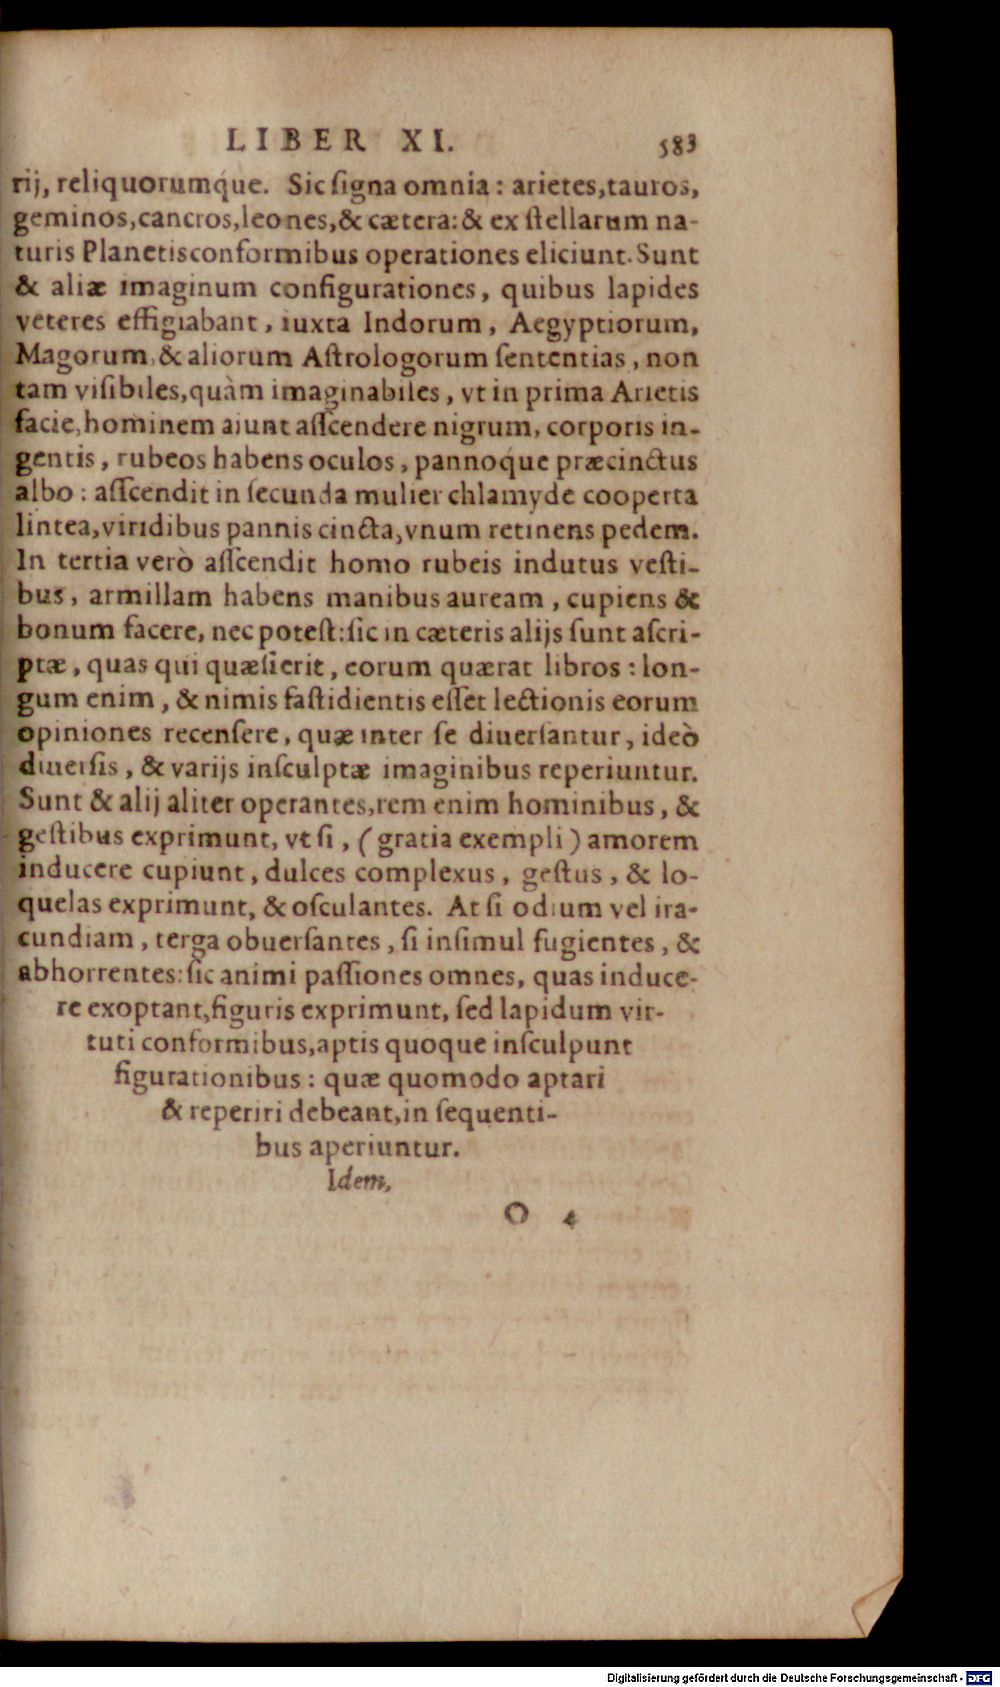 LIBER XI. 583
rij, reliquorumq́ue. Sic ſigna omnia : arietes, tauros,
geminos, cancros, leones, & cætera: & ex ſtellarum na-
turis Planetis conformibus operationes eliciunt. Sunt
& aliæ imaginum configurationes, quibus lapides
veteres effigiabant, iuxta Indorum, Aegyptiorum,
Magorum, & aliorum Aſtrologorum ſententias, non
tam viſibiles, quàm imaginabiles, vt in prima Arietis
facie, hominem aiunt aſſcendere nigrum, corporis in-
gentis, rubeos habens oculos, pannoq́ue præcinctus
albo : aſſcendit in ſecunda mulier chlamyde cooperta
lintea, viridibus pannis cincta, vnum retinens pedem.
In tertia verò aſſcendit homo rubeis indutus veſti-
bus, armillam habens manibus auream, cupiens &
bonum facere, nec poteſt: ſic in cæteris alijs ſunt aſcri-
ptæ, quas qui quæſierit, eorum quærat libros : lon-
gum enim, & nimis faſtidientis eſſet lectionis eorum
opiniones recenſere, quæ inter ſe diuerſantur, ideò
diuerſis, & varijs inſculptæ imaginibus reperiuntur.
Sunt & alij aliter operantes, rem enim hominibus, &
geſtibus exprimunt, vt ſi, (gratia exempli) amorem
inducere cupiunt, dulces complexus, geſtus, & lo-
quelas exprimunt, & oſculantes. At ſi odium vel ira-
cundiam, terga obuerſantes, ſi inſimul fugientes, &
abhorrentes: ſic animi paſſiones omnes, quas induce-
re exoptant, figuris exprimunt, ſed lapidum vir-
tuti conformibus, aptis quoque inſculpunt
figurationibus : quæ quomodo aptari
& reperiri debeant, in ſequenti-
bus aperiuntur.
Idem,
O 4
Digitalisierung gefördert durch die Deutsche Forschungsgemeinschaft - DFG